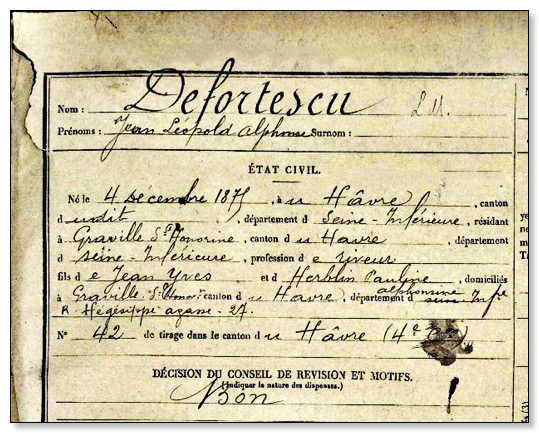 Nom : Defortescu
Prénoms : Jean Léopold Alphonse Surnom :
ÉTAT CIVIL.
Né le 4 Decembre 1875, à u Hâvre, canton
d udit, département d Seine-Inférieure, résidant
à Graville Ste Honorine, canton d u Havre, département
d Seine-Inférieure, profession d e
fils d e Jean Yves et d Herblin Pauline alphonsine, domiciliés
à Graville-Ste Honori canton d u Havre, département d Seine Infre
R. Hégésippe 27.
No 42 de tirage dans le canton d u Hâvre (4e
DÉCISION DU CONSEIL DE REVISION ET MOTIFS.
(Indiquer la nature des dispenses.)
Bon